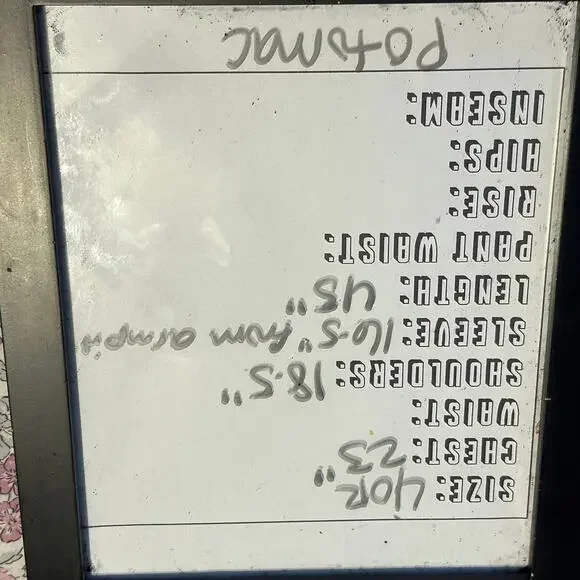 SIZE: 40R
CHEST: 23"
WAIST:
SHOULDERS: 18.5"
SLEEVE: 16.5" from armpit
LENGTH: 45"
PANT WAIST:
RISE:
HIPS:
INSEAM:
Potomac